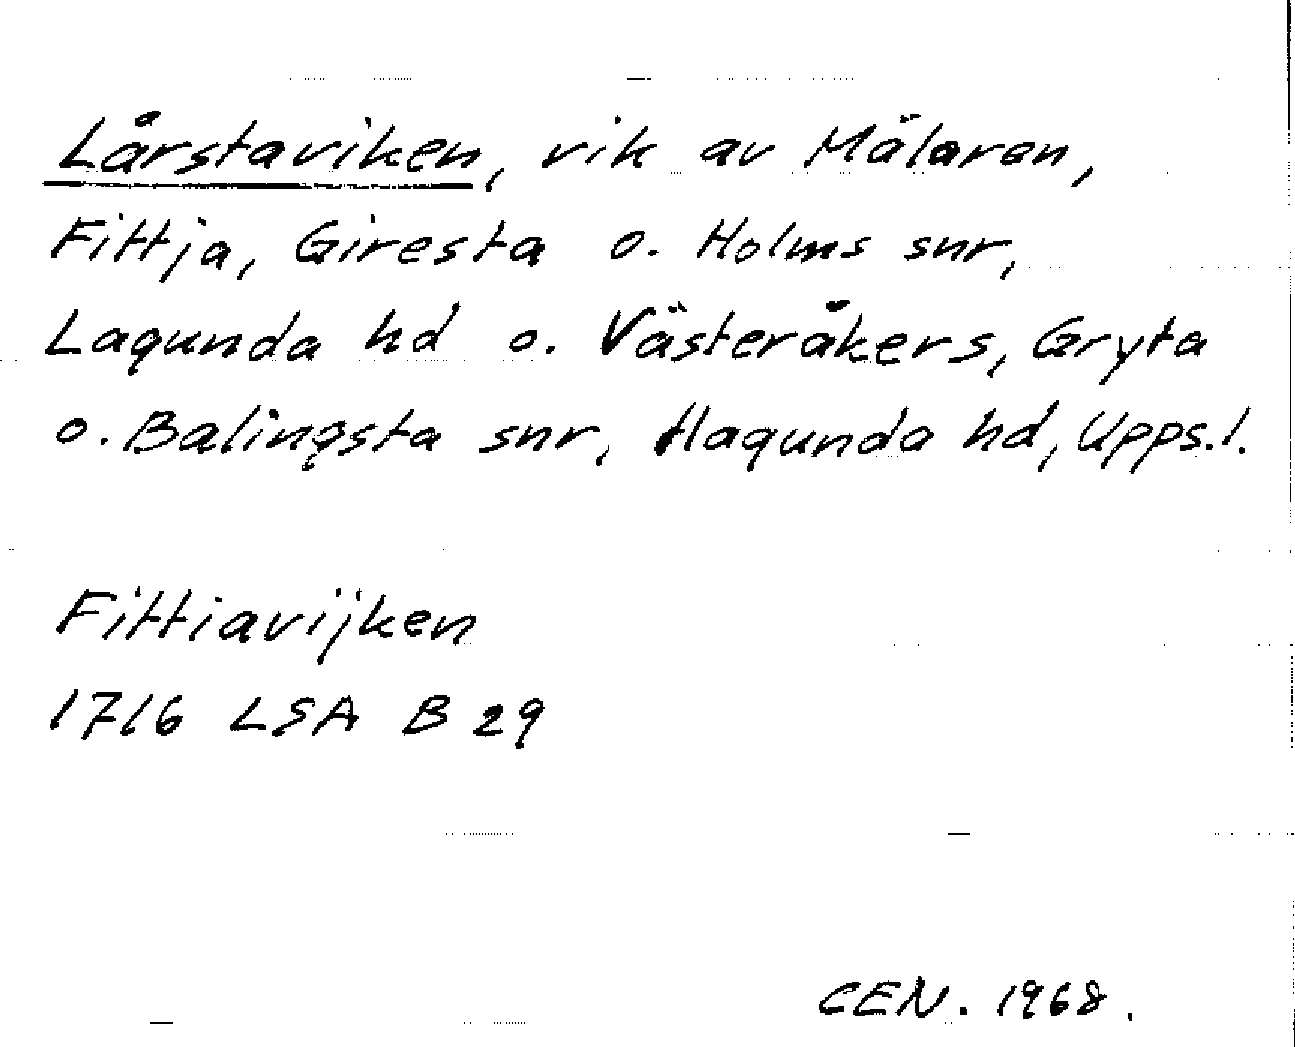 Lårstaviken, vik av Mälaren,
Fittja, Giresta o. Holms snr,
Lagunda hd o. Västeråkers, Gryta
o. Balingsta snr, Hagunda hd, Upps.l.
Fittiavijken
1716 LSA B 29
CEN. 1968.